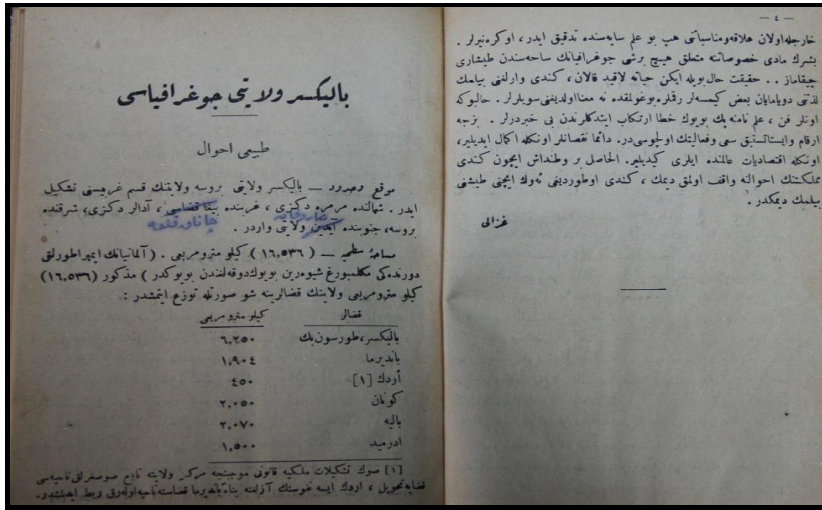 — ٤ —
خارجله اولان علاقه ومناسباتی هپ بو علم سایه‌سنده تدقیق ایدر، اوکره‌نیرلر .
بشرك مادی خصوصاتنه متعلق هیچ برشی جوغرافیانك ساحه‌سندن طیشاری
چیقاماز . . حقیقت حال بویله ایكن حیاته لاقید قالان ، كندی وارلغنی بیلمك
لذتنی دویامایان بعض كیمسه‌لر رقملره بوغولمقده نه معنا اولدیغنی سویلرلر . حالبوكه
اونلر فن ، علم نامنه پك بویوك خطا ارتكاب ایتدكلرندن بی خبردرلر . بزجه
ارقام وایستاتستیق سعی وفعالیتك اولچوسی‌در. دائما نقصانلر اونكله اكمال ایدیلیر،
اونكله اقتصادیات عالمنده ایلری كیدیلیر. الحاصل بر وطنداش ایچون كندی
مملكتنك احوالنه واقف اولمق دیمك ، كندی اوطوردیغی ئه‌وك ایچنی طیشنی
بیلمك دیمكدر .
غزالی
بالیكسر ولایتی جوغرافیاسی
طبیعی احوال
موقع وحدود — بالیكسر ولایتی بروسه ولایتنك قسم غربیسنی تشكیل
ایدر . شمالنده مرمره دكزی ، غربنده بیغا قضاسی ، آدالر دكزی، شرقنده
بروسه، جنوبنده آیدین ولایتی واردر .
چاناق قلعه
مساحهٔ سطحیه — ( ١٦,٥٣٦ ) كیلو مترو مربعی . ( آلمانیانك ایمپراطورلق
دورنده‌كی مكلمبورغ شیوه‌رین بویوك دوقه‌لغندن بویوكدر ) مذكور (١٦,٥٣٦)
كیلو مترو مربعی ولایتك قضالرینه شو صورتله توزع ایتمشدر :
قضالر كیلو مترو مربعی
بالیكسر، طورسون بك ٦,٢٥٠
باندیرما ١,٩٠٤
أردك [١] ٤٥٠
كونان ٢,٠٥٠
بالیه ٢,٠٧٠
ادرمید ١,٥٠٠
[١] صوك تشكیلات ملكیه قانونی موجبنجه مركز ولایته تابع صوصغرلق ناحیه‌سی
قضایه تحویل ، اردك ایسه نفوسنك آزلغنه بناءً باندیرما قضاسنه ناحیه اوله‌رق ربط ایدلمشدر.